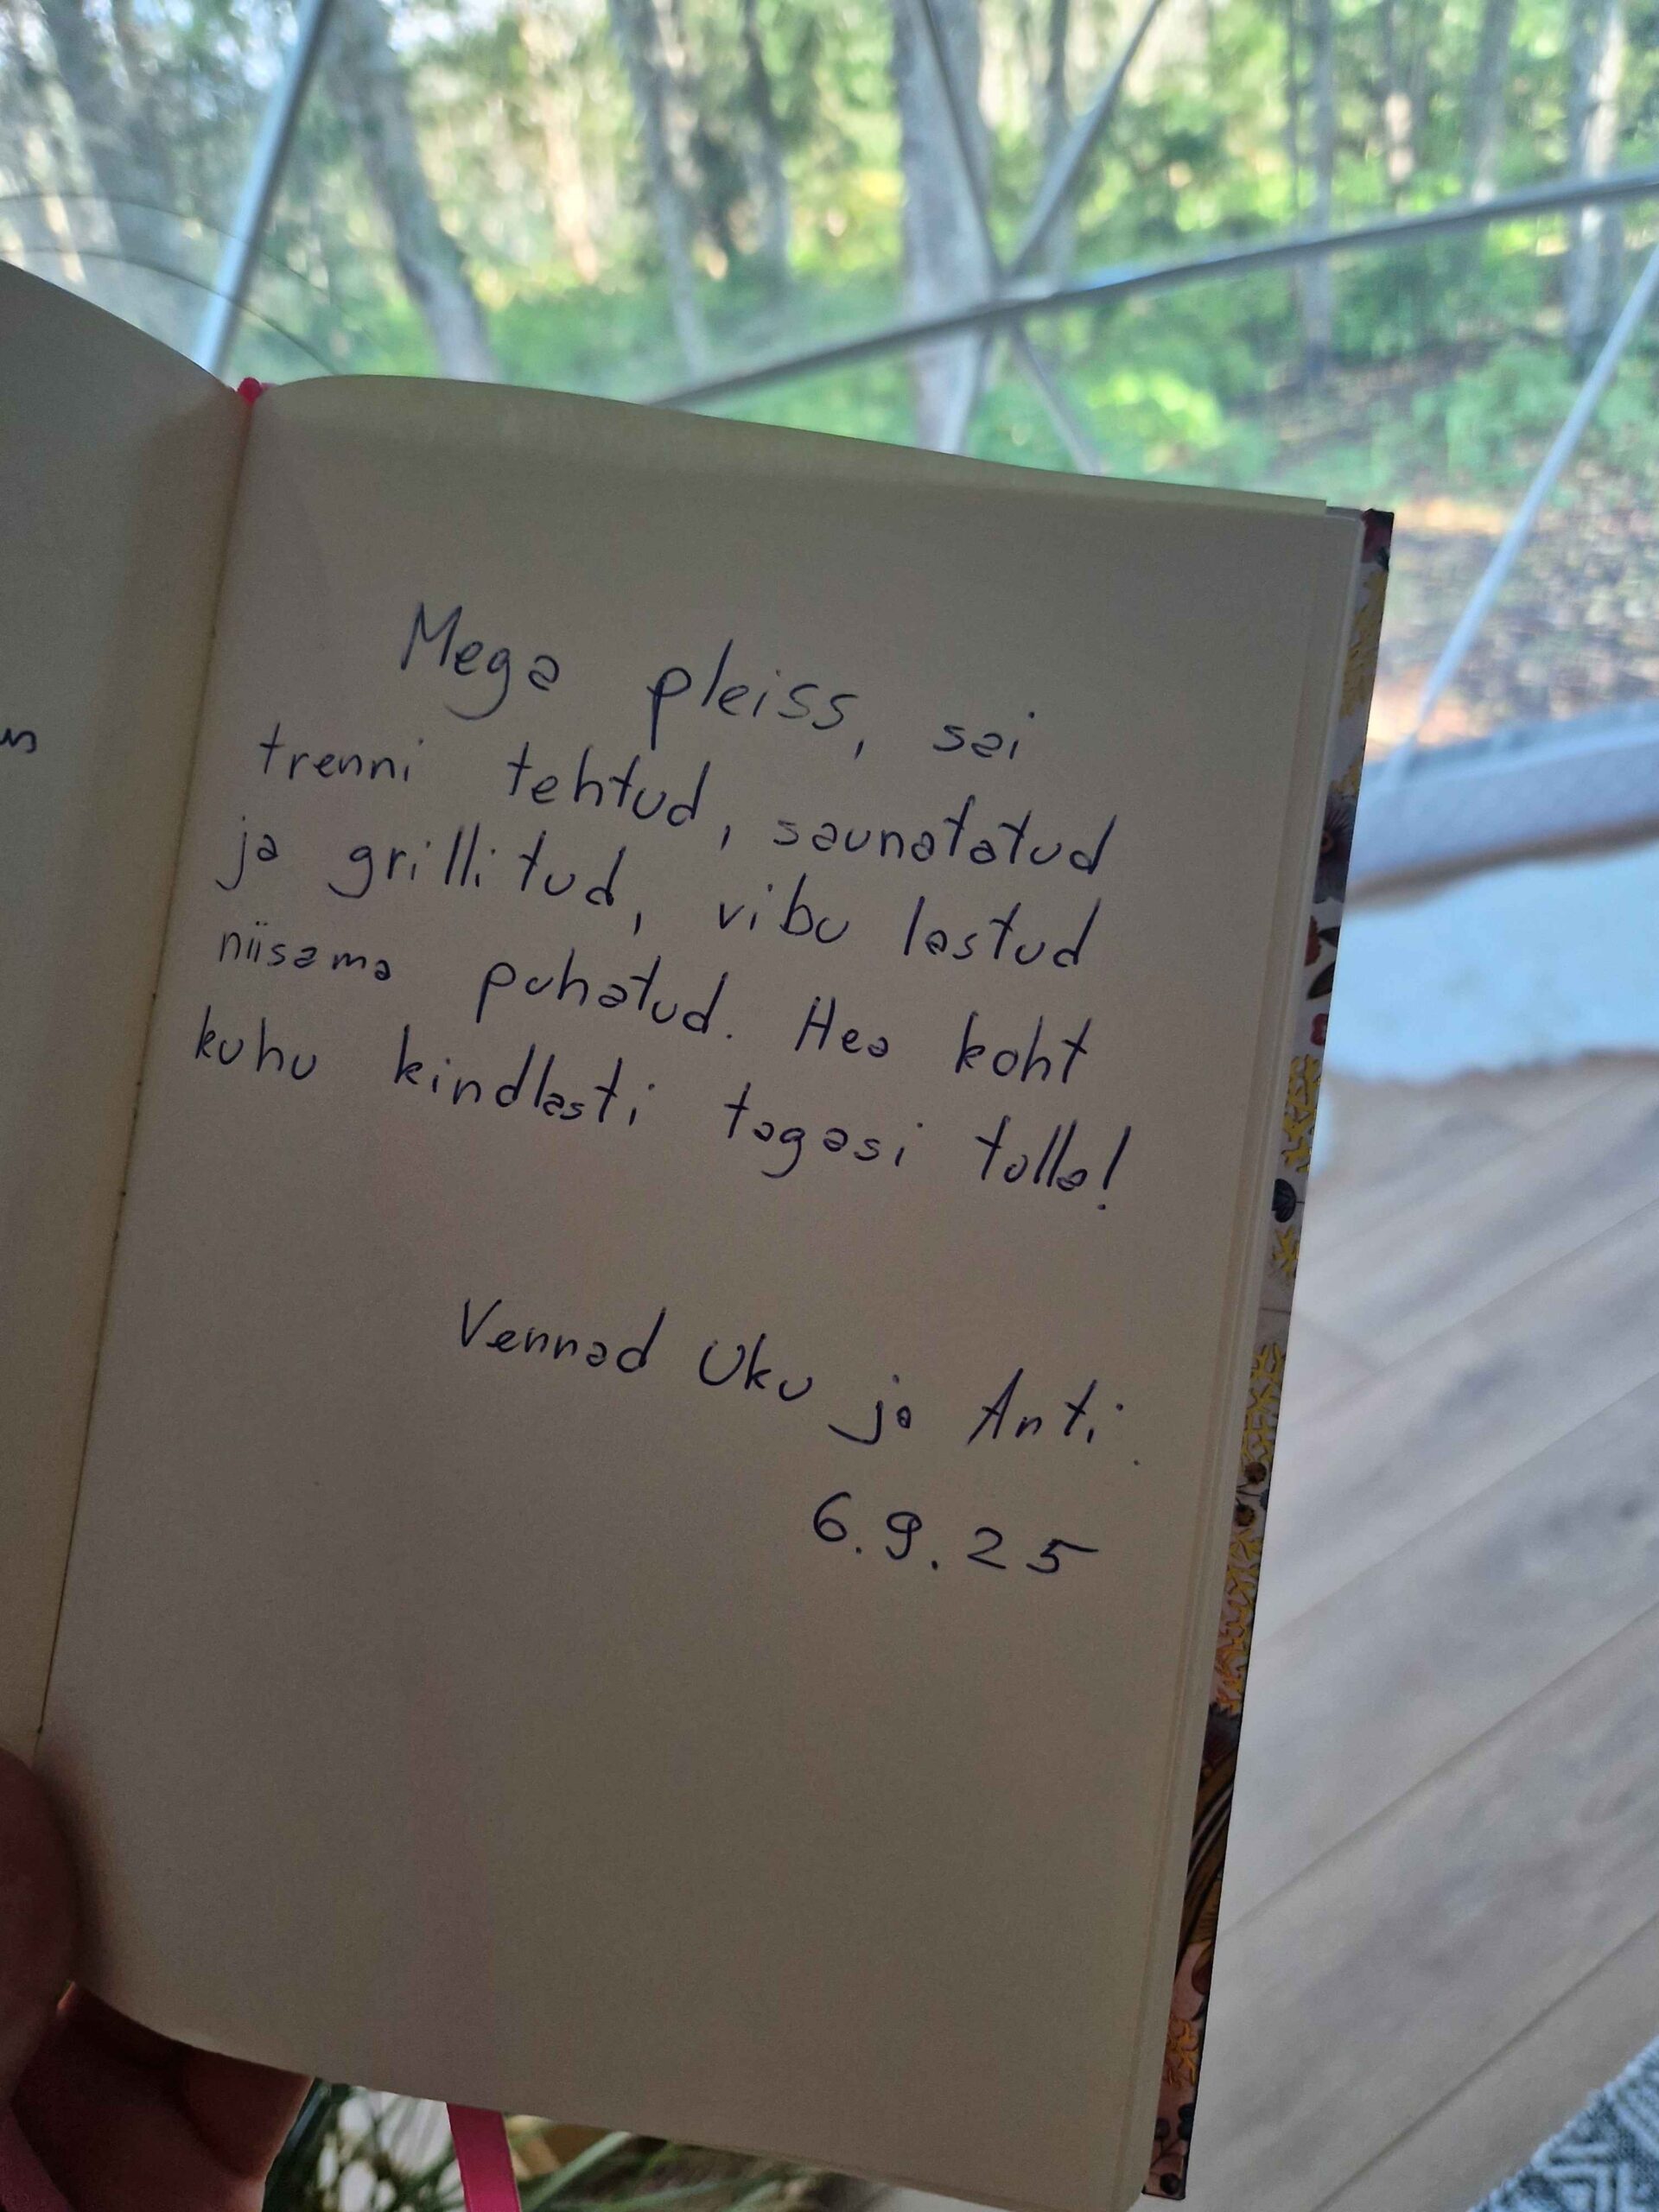 Mega pleiss, sai
trenni tehtud, saunatatud
ja grillitud, vibu lastud
niisama puhatud. Hea koht
kuhu kindlasti tagasi tulla!
Vennad Uku ja Anti.
6.9.25